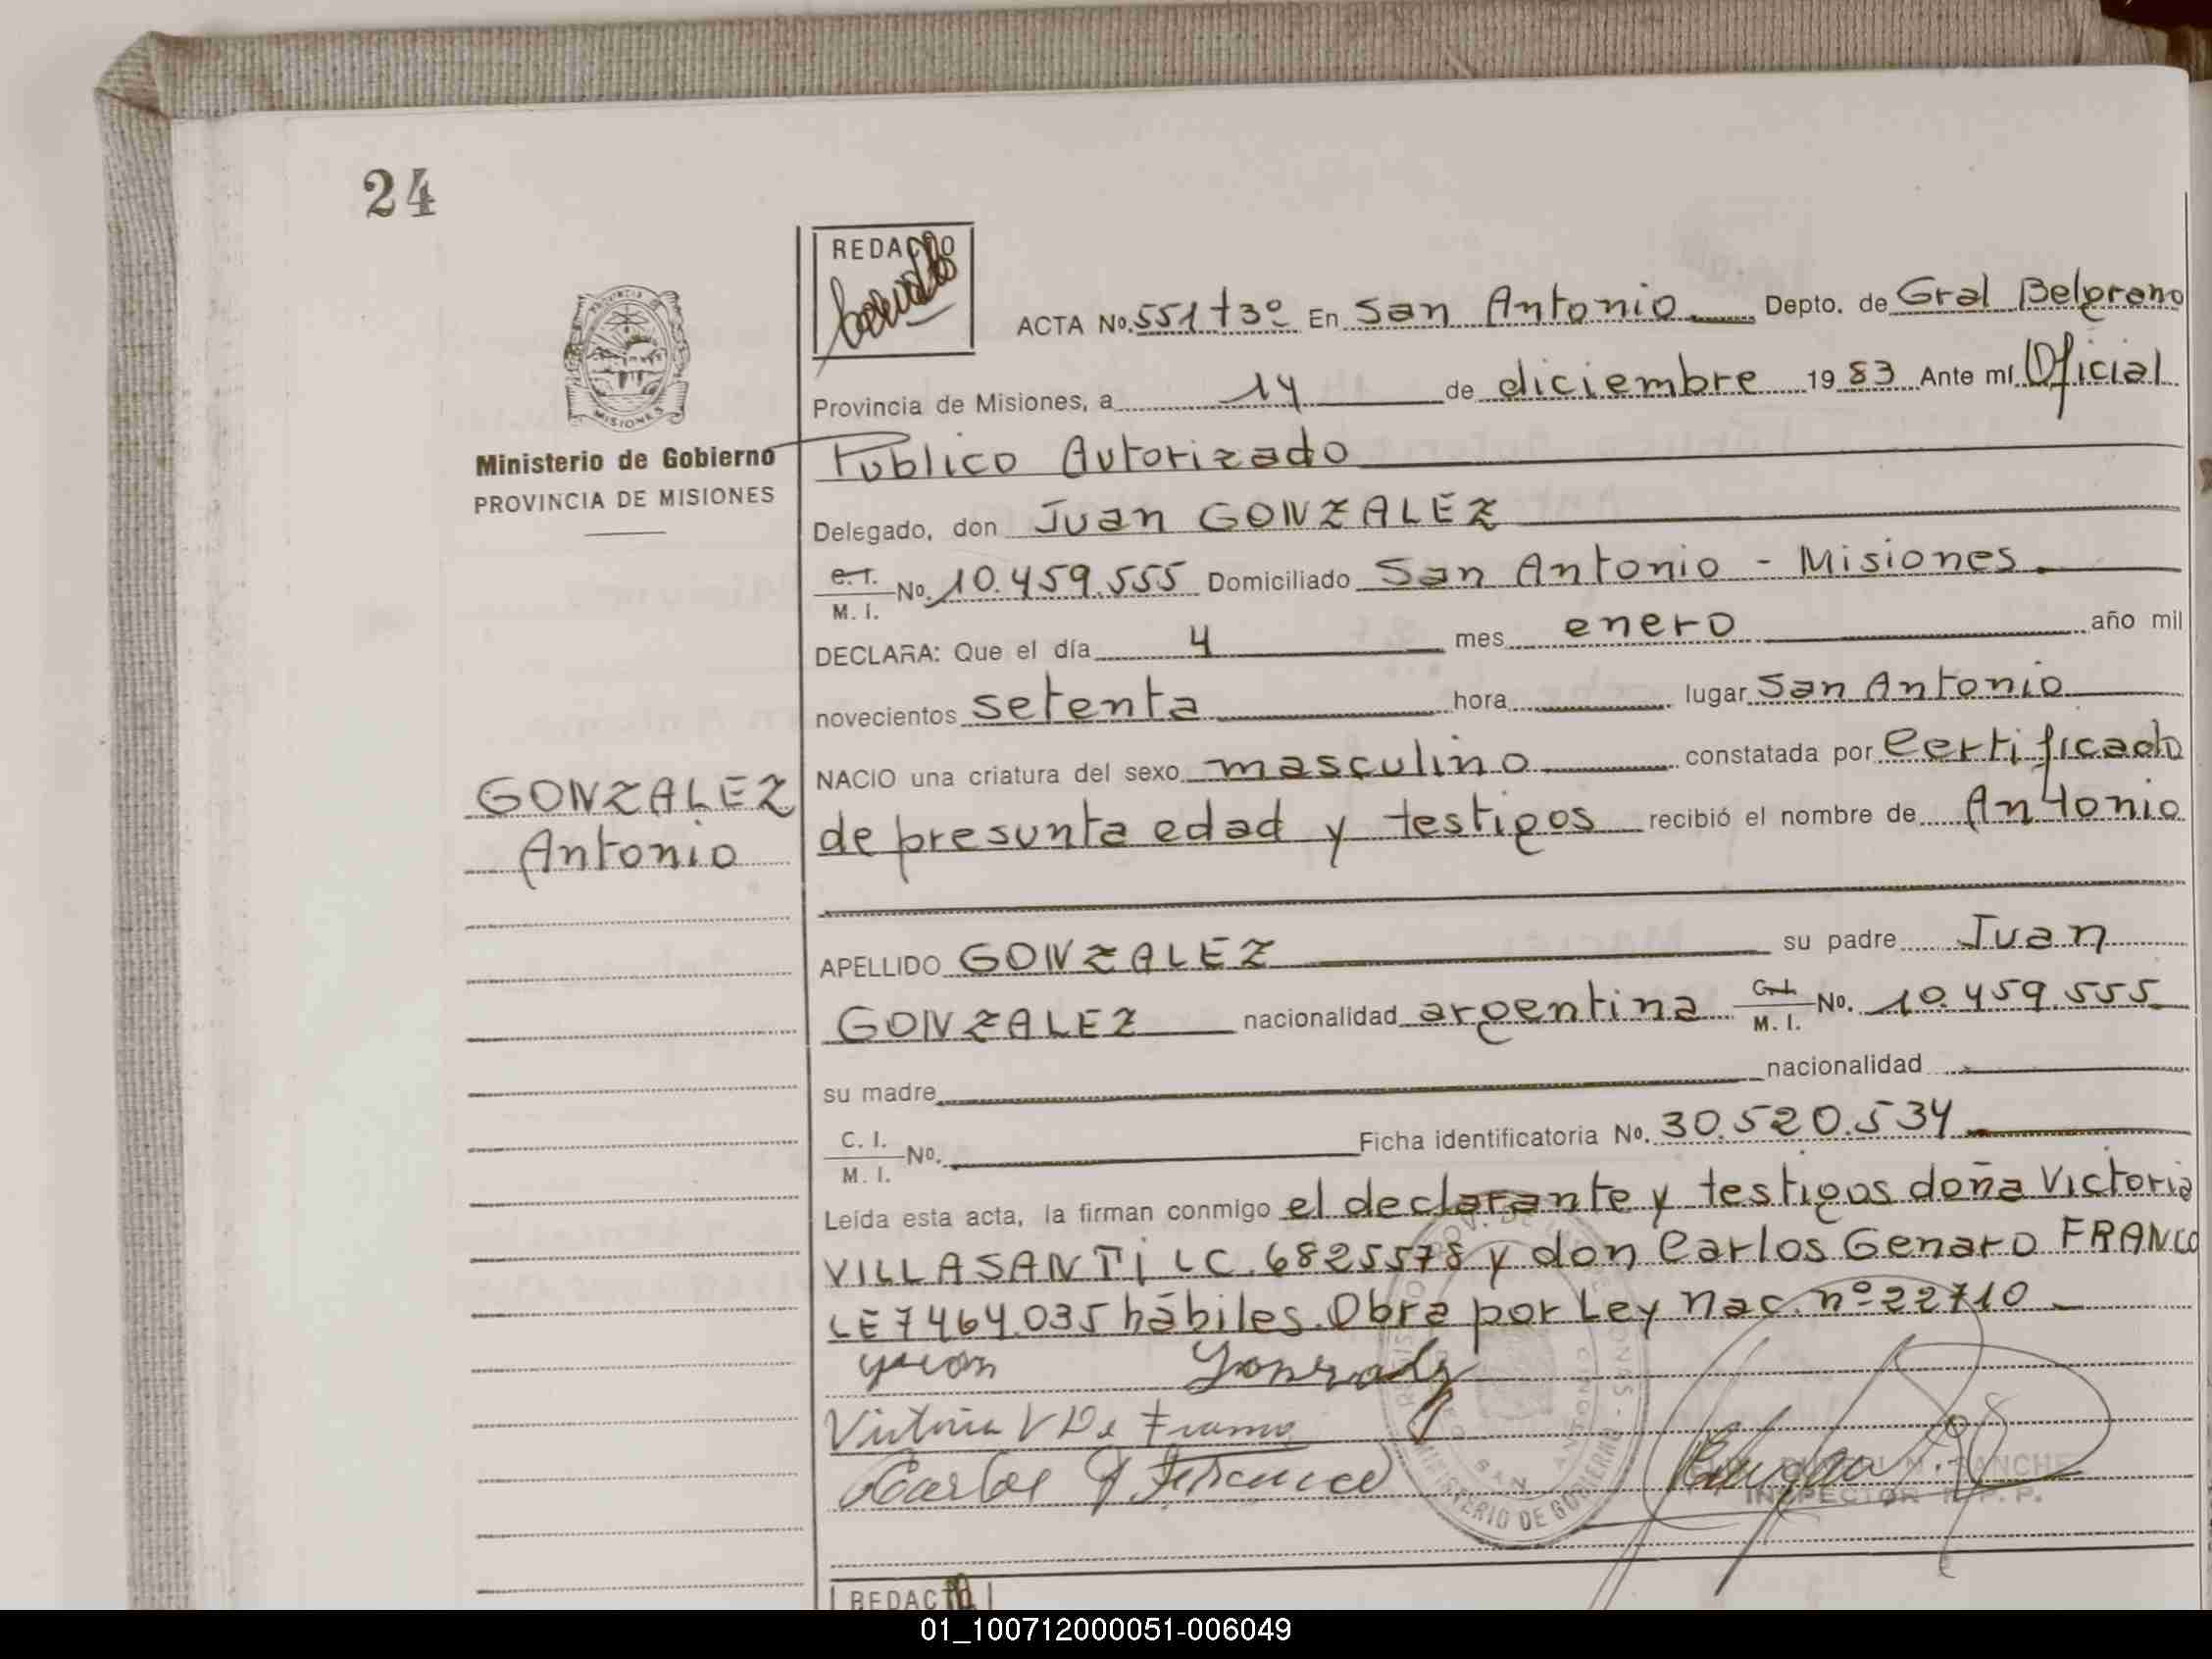 24
REDACTO
ACTA No. 551 t3º En San Antonio Depto. de Gral Belgrano
PROVINCIA DE MISIONES
Provincia de Misiones, a 14 de diciembre 1983 Ante mí Oficial
Ministerio de Gobierno
PROVINCIA DE MISIONES
Publico Autorizado
Delegado, don Juan GONZALEZ
C.I. M. I. No. 10.459.555 Domiciliado San Antonio - Misiones.
DECLARA: Que el día 4 mes enero año mil
novecientos setenta hora lugar San Antonio
NACIO una criatura del sexo masculino constatada por Certificado
GONZALEZ
Antonio
de presunta edad y testigos recibió el nombre de Antonio
APELLIDO GONZALEZ su padre Juan
GONZALEZ nacionalidad argentina C.I. M. I. No. 10.459.555
su madre nacionalidad
C. I. M. I. No. Ficha identificatoria No. 30.520.534
Leída esta acta, la firman conmigo el declarante y testigos doña Victoria
VILLASANTI LC. 6825578 y don Carlos Genaro FRANCO
LE 7464.035 hábiles. Obra por Ley Nac. nº 22710
Juan Gonzalez
Victoria V De Franco
Carlos G Franco
MINISTERIO DE GOBIERNO
SAN ANTONIO
INSPECTOR R. P. P.
REDACTO
01_100712000051-006049